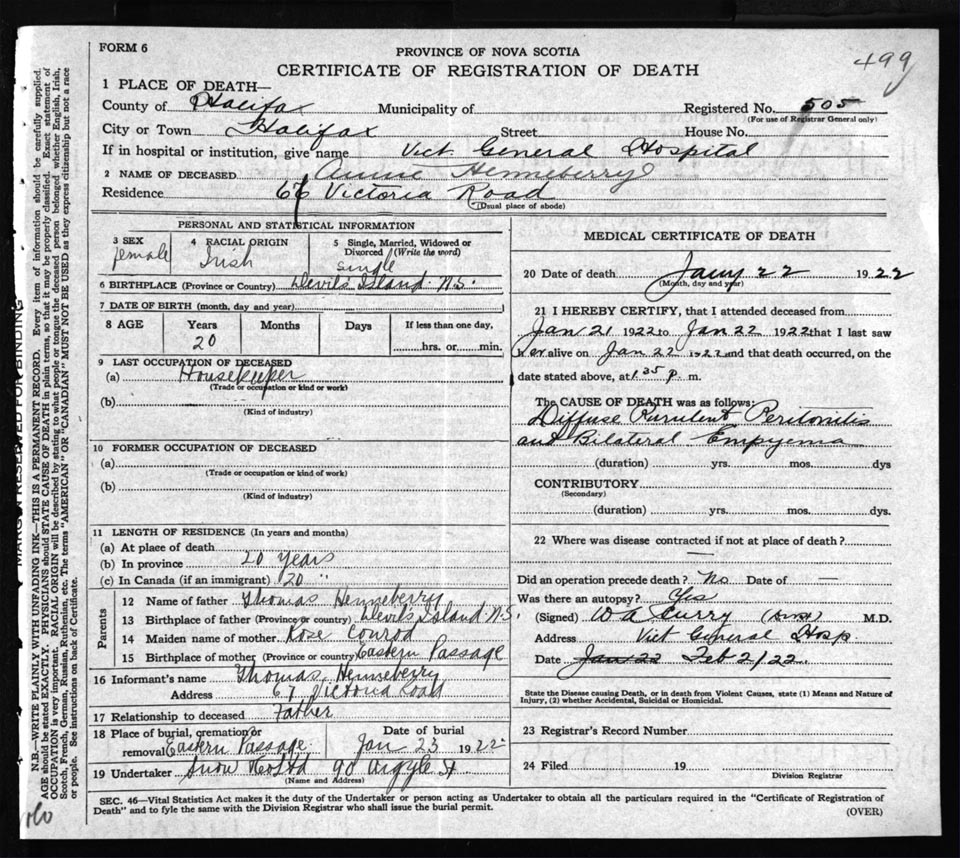 FORM 6
PROVINCE OF NOVA SCOTIA
499
CERTIFICATE OF REGISTRATION OF DEATH
1 PLACE OF DEATH—
County of Halifax Municipality of Registered No. 505
(For use of Registrar General only)
City or Town Halifax Street House No.
If in hospital or institution, give name Vict General Hospital
2 NAME OF DECEASED Annie Henneberry
Residence 67 Victoria Road
(Usual place of abode)
PERSONAL AND STATISTICAL INFORMATION
3 SEX 4 RACIAL ORIGIN 5 Single, Married, Widowed or Divorced (Write the word)
female Irish Single
6 BIRTHPLACE (Province or Country) Devils Island N.S.
7 DATE OF BIRTH (month, day and year)
8 AGE Years Months Days If less than one day,
20 hrs. or min.
9 LAST OCCUPATION OF DECEASED
(a) Housekeeper
(Trade or occupation or kind or work)
(b)
(Kind of industry)
10 FORMER OCCUPATION OF DECEASED
(a)
(Trade or occupation or kind of work)
(b)
(Kind of industry)
11 LENGTH OF RESIDENCE (In years and months)
(a) At place of death
(b) In province 20 years
(c) In Canada (if an immigrant) 20 "
Parents
12 Name of father Thomas Henneberry
13 Birthplace of father (Province or country) Devils Island N.S.
14 Maiden name of mother Rose Conrod
15 Birthplace of mother (Province or country) Eastern Passage
16 Informant's name Thomas Henneberry
Address 67 Victoria Road
17 Relationship to deceased Father
18 Place of burial, cremation or removal Eastern Passage Date of burial Jan 23 1922
19 Undertaker Snow & Co Ltd 90 Argyle St
(Name and Address)
MEDICAL CERTIFICATE OF DEATH
20 Date of death Jany 22 1922
(Month, day and year)
21 I HEREBY CERTIFY, that I attended deceased from
Jan 21 1922 to Jan 22 1922 that I last saw
her alive on Jan 22 1922 and that death occurred, on the
date stated above, at 1.35 p. m.
The CAUSE OF DEATH was as follows:
Diffuse Purulent Peritonitis
and Bilateral Empyema
(duration) yrs. mos. dys
CONTRIBUTORY
(Secondary)
(duration) yrs. mos. dys.
22 Where was disease contracted if not at place of death?
Did an operation precede death? No Date of —
Was there an autopsy? Yes
(Signed) W A Curry M.D.
Address Vict General Hosp
Date Jan 22 Feb 2/22
State the Disease causing Death, or in death from Violent Causes, state (1) Means and Nature of
Injury, (2) whether Accidental, Suicidal or Homicidal.
23 Registrar's Record Number
24 Filed 19
Division Registrar
SEC. 46—Vital Statistics Act makes it the duty of the Undertaker or person acting as Undertaker to obtain all the particulars required in the "Certificate of Registration of
Death" and to fyle the same with the Division Registrar who shall issue the burial permit.
(OVER)
MARGIN RESERVED FOR BINDING
N.B.—WRITE PLAINLY WITH UNFADING INK—THIS IS A PERMANENT RECORD. Every item of information should be carefully supplied.
AGE should be stated EXACTLY. PHYSICIANS should STATE CAUSE OF DEATH in plain terms, so that it may be properly classified. Exact statement of
OCCUPATION is very important. RACIAL ORIGIN will be described by stating to what people or tongue the deceased person belonged whether English, Irish,
Scotch, French, German, Russian, Ruthenian, etc. The terms "AMERICAN" OR "CANADIAN" MUST NOT BE USED as they express citizenship but not a race
or people. See instructions on back of Certificate.